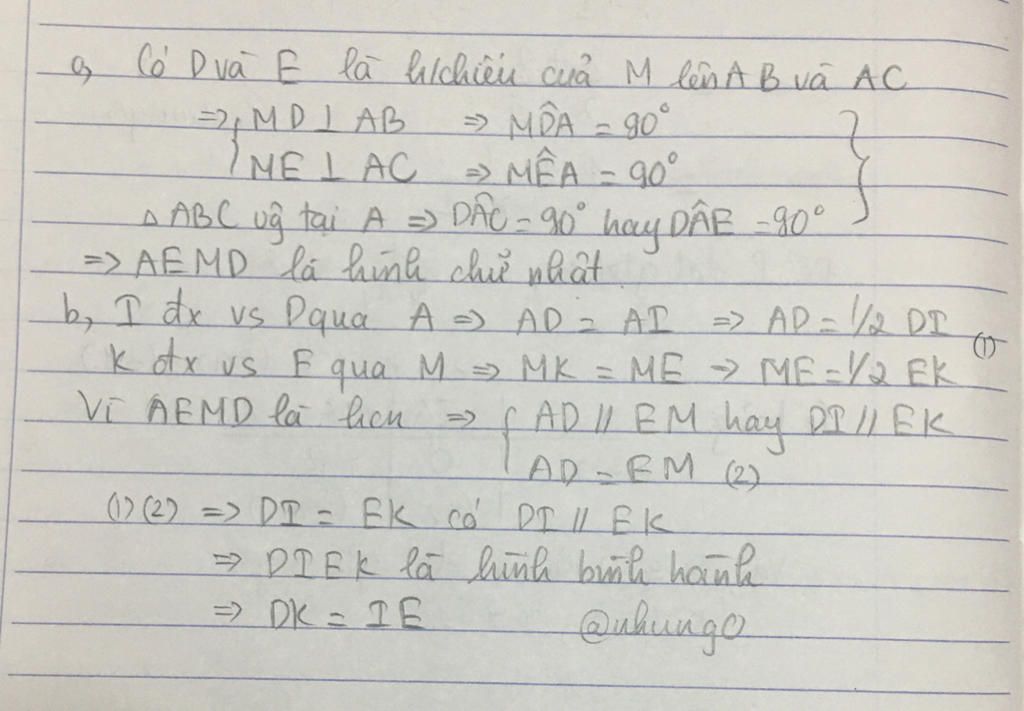 a, Có D và E là h/chiếu của M lên AB và AC
=> { MD ⊥ AB => MD̂A = 90°
ME ⊥ AC => MÊA = 90° }
△ ABC vg tại A => DÂC = 90° hay DÂE = 90°
=> AEMD là hình chữ nhật.
b, I đx vs D qua A => AD = AI => AD = 1/2 DI
K đx vs E qua M => MK = ME => ME = 1/2 EK (1)
Vì AEMD là hcn => { AD // EM hay DI // EK
AD = EM (2)
(1) (2) => DI = EK có DI // EK
=> DIEK là hình bình hành
=> DK = IE @nhung0